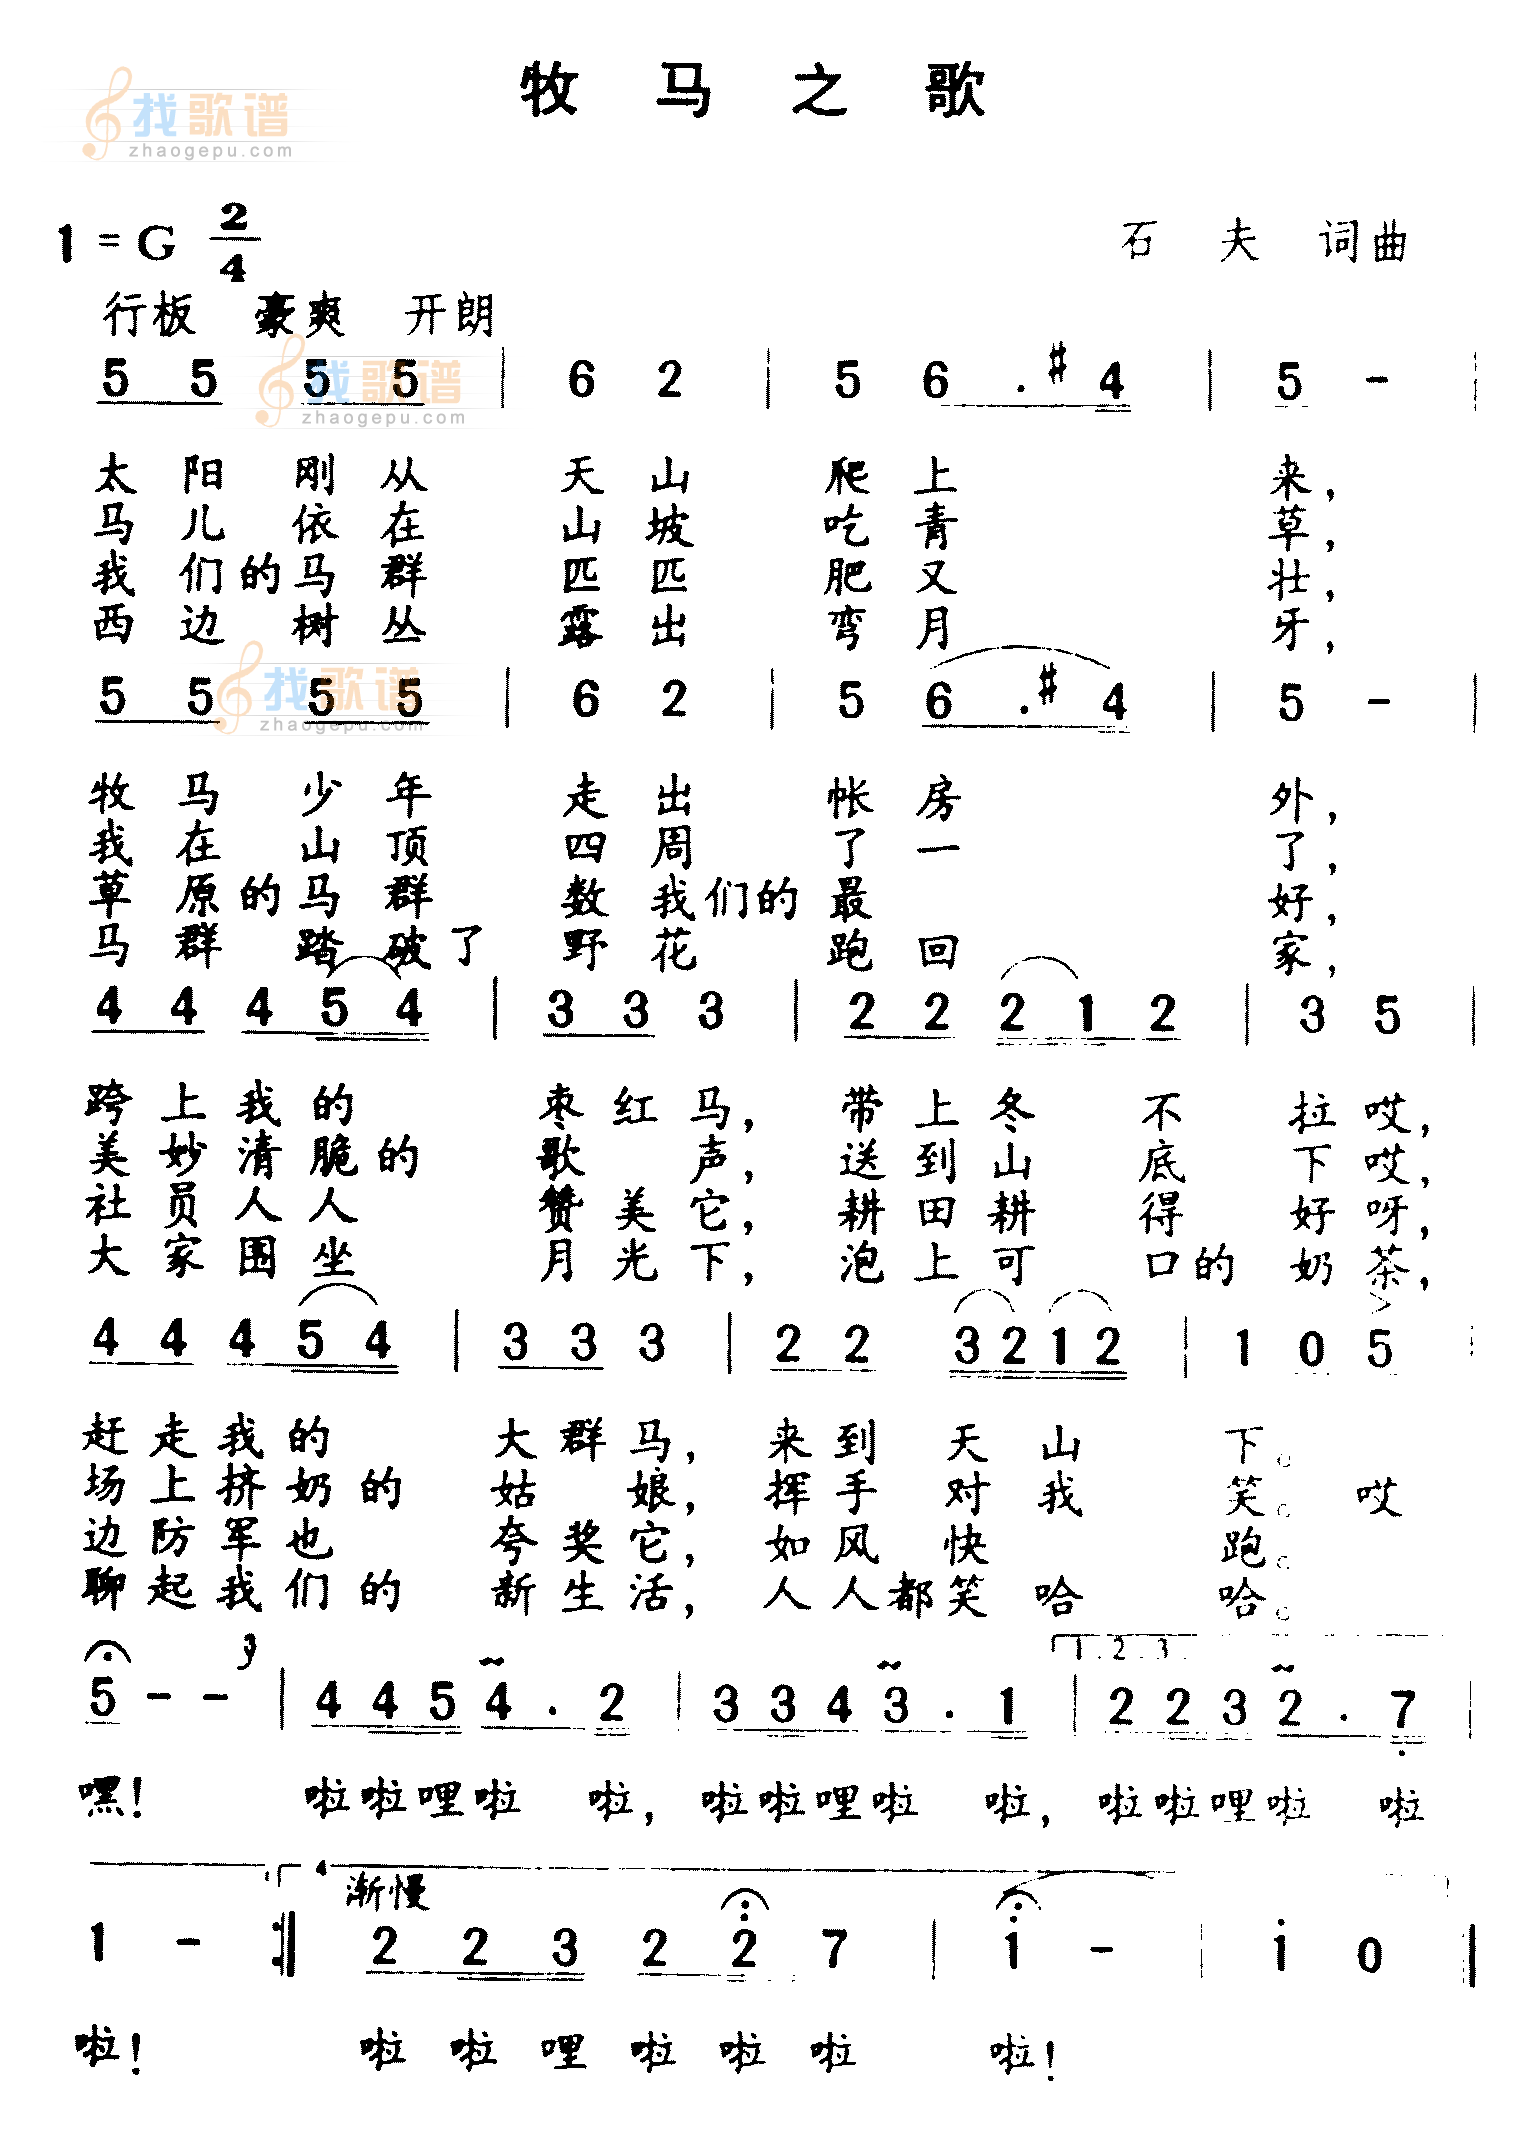 牧马之歌
找歌谱
zhaogepu.com
1 = G 2/4
石 夫 词曲
行板 豪爽 开朗
5 5 5 5 | 6 2 | 5 6 . #4 | 5 - |
找歌谱
zhaogepu.com
太阳刚从天山爬上来，
马儿依在山坡吃青草，
我们的马群匹匹肥又壮，
西边树丛露出弯月牙，
找歌谱
zhaogepu.com
5 5 5 5 | 6 2 | 5 6 . #4 | 5 - |
牧马少年走出帐房外，
我在山顶四周了一了，
草原的马群数我们的最好，
马群踏破了野花跑回家，
4 4 4 5 4 | 3 3 3 | 2 2 2 1 2 | 3 5 |
跨上我的枣红马，带上冬不拉哎，
美妙清脆的歌声，送到山底下哎，
社员人人赞美它，耕田耕得好呀，
大家围坐月光下，泡上可口的奶茶，
4 4 4 5 4 | 3 3 3 | 2 2 3 2 1 2 | 1 0 5 |
赶走我的大群马，来到天山下。
场上挤奶的姑娘，挥手对我笑。哎
边防军也夸奖它，如风快跑。
聊起我们的新生活，人人都笑哈哈。
1.2.3.
5 - - | 4 4 5 4 . 2 | 3 3 4 3 . 1 | 2 2 3 2 . 7 |
嘿！啦啦哩啦啦，啦啦哩啦啦，啦啦哩啦啦
4
渐慢
1 - :| 2 2 3 2 2 7 | 1 - | 1 0 |
啦！啦啦哩啦啦啦啦！